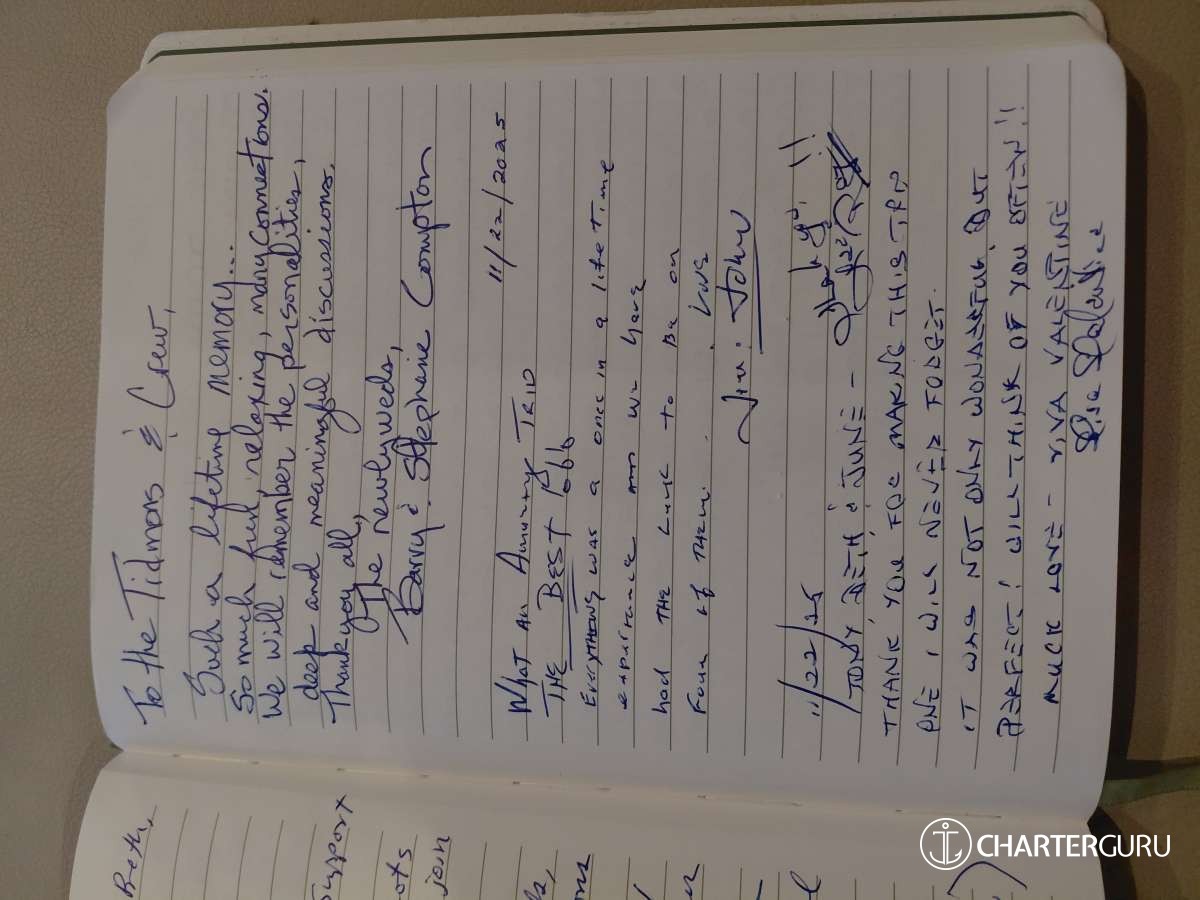 To the Tidmons & Crew,
Such a lifetime memory...
So much fun, relaxing, many connections.
We will remember the personalities,
deep and meaningful discussions.
Thank you all,
The newlyweds,
Barry & Stephanie Compton
11/22/2025
What An Amazing Trip
THE BEST
Everything was a once in a lifetime
experience and we have
had THE Luck to Be on
Four of THEM. Love
Jim & John
11/22/25 Thank you!!
TONY, BETH & JUNE -
THANK YOU FOR MAKING THIS TRIP
ONE I WILL NEVER FORGET.
IT WAS NOT ONLY WONDERFUL BUT
PERFECT! WILL THINK OF YOU OFTEN!!
MUCH LOVE - RIVA VALENTINE
Beth,
Support
join
CHARTERGURU